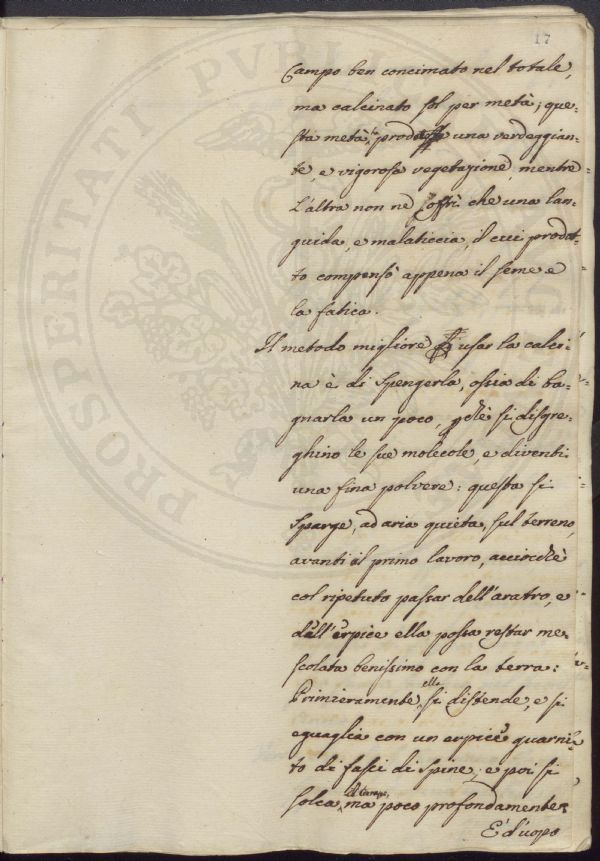 17
Campo ben concimato nel totale,
ma calcinato sol per metà; que-
sta metà produsse una verdeggian-
te, e vigorosa vegetazione, mentre
l'altra non ne offrì che una lan-
guida, e malaticcia, il cui prodot-
to compensò appena il seme e
la fatica.
Il metodo migliore usar la calci-
na è di spengerla, ossia di ba-
gnarla un poco, pchè si disgre-
ghino le sue molecole, e diventi
una fina polvere: questa si
sparge, ad aria quieta, sul terreno,
avanti il primo lavoro, acciocchè
col ripetuto passar dell'aratro, e
dall'erpice ella possa restar me-
scolata benissimo con la terra:
Primieramente, ella si distende, e si
eguaglia con un erpice guarni-
to di fasci di spine, e poi si
solca, ma poco profondamente.
E' d'uopo
PROSPERITATI PUBLI